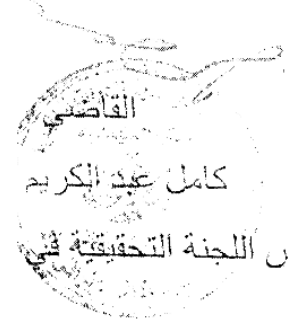 القاضي
كامل عبد الكريم
ن اللجنة التحقيقية في